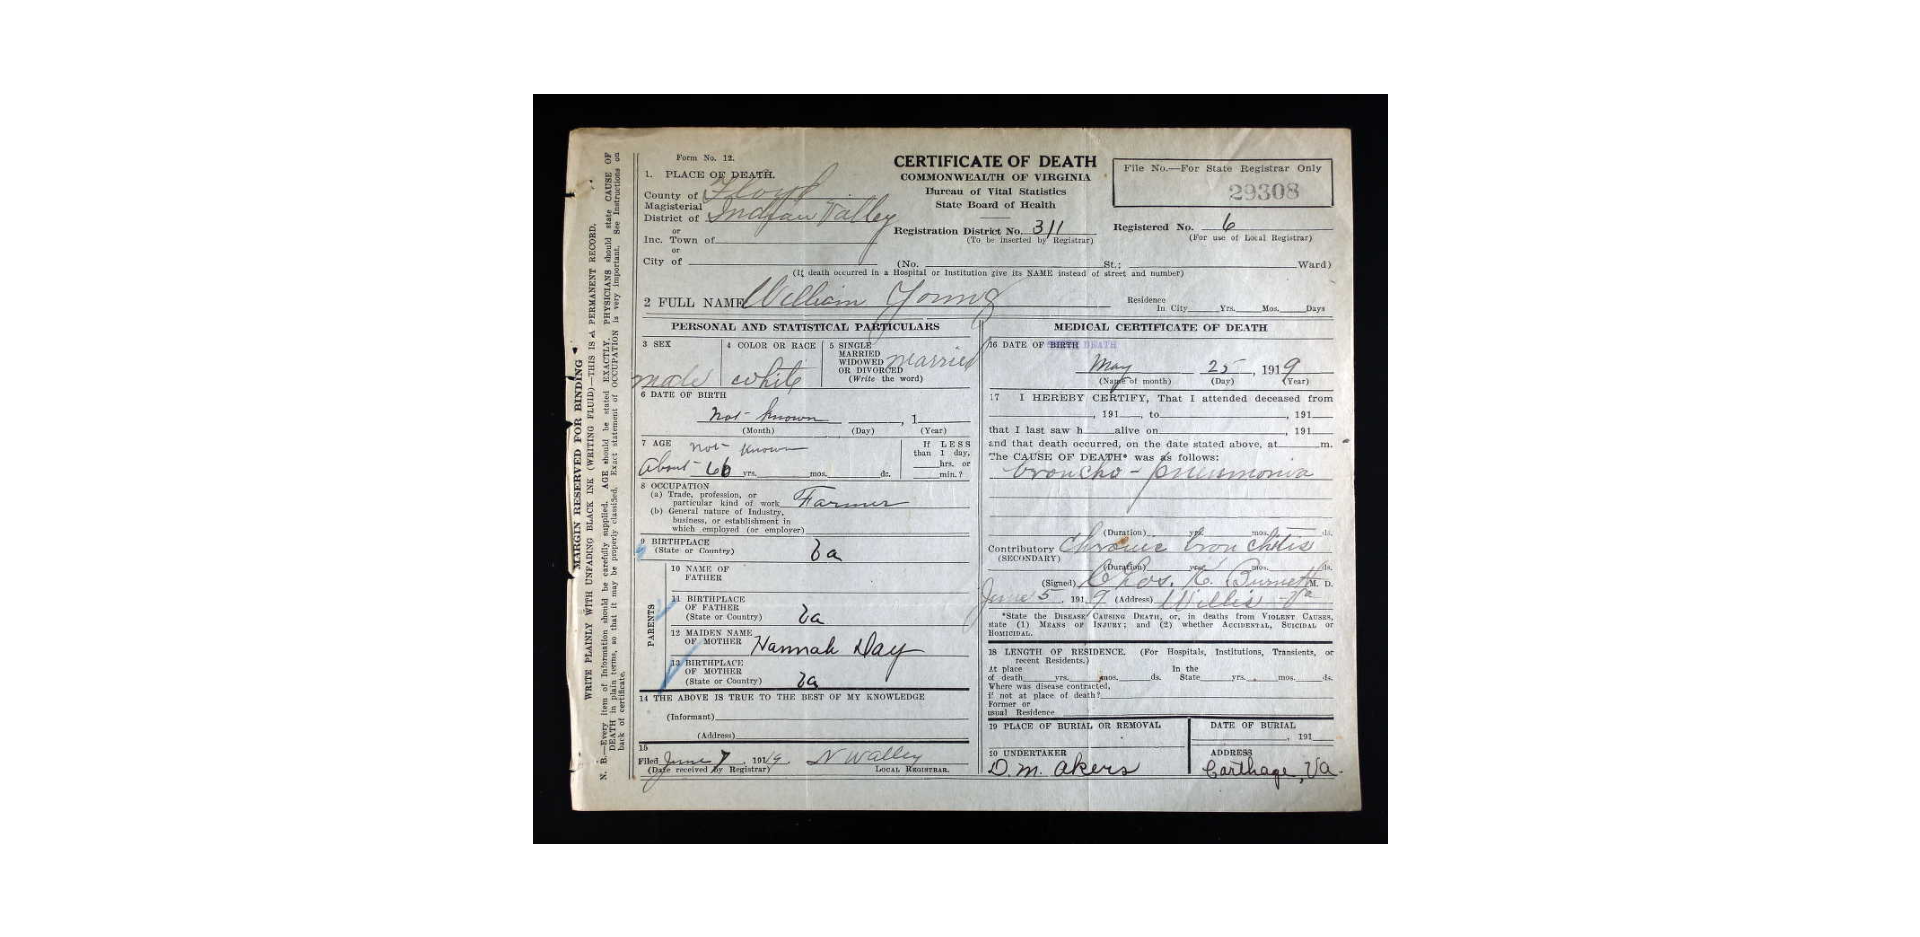 Form No. 12.
CERTIFICATE OF DEATH
COMMONWEALTH OF VIRGINIA
Bureau of Vital Statistics
State Board of Health
File No.—For State Registrar Only
29308
1. PLACE OF DEATH.
County of Floyd
Magisterial
District of Indian Valley
or
Inc. Town of
or
City of
Registration District No. 311
(To be inserted by Registrar)
Registered No. 6
(For use of Local Registrar)
(No. St.; Ward)
(If death occurred in a Hospital or Institution give its NAME instead of street and number)
2 FULL NAME William Young
Residence
In City Yrs. Mos. Days
PERSONAL AND STATISTICAL PARTICULARS
3 SEX
male
4 COLOR OR RACE
white
5 SINGLE
MARRIED
WIDOWED
OR DIVORCED
(Write the word)
married
6 DATE OF BIRTH
not known , 1
(Month) (Day) (Year)
7 AGE not known
About 66 yrs. mos. ds.
If LESS
than 1 day,
hrs. or
min.?
8 OCCUPATION
(a) Trade, profession, or
particular kind of work Farmer
(b) General nature of Industry,
business, or establishment in
which employed (or employer)
9 BIRTHPLACE
(State or Country) Va
PARENTS
10 NAME OF
FATHER
11 BIRTHPLACE
OF FATHER
(State or Country) Va
12 MAIDEN NAME
OF MOTHER Hannah Day
13 BIRTHPLACE
OF MOTHER
(State or Country) Va
14 THE ABOVE IS TRUE TO THE BEST OF MY KNOWLEDGE
(Informant)
(Address)
15
Filed June 7, 1919 N Walley
(Date received by Registrar) LOCAL REGISTRAR.
MEDICAL CERTIFICATE OF DEATH
16 DATE OF BIRTH DEATH
May 25, 1919
(Name of month) (Day) (Year)
17 I HEREBY CERTIFY, That I attended deceased from
, 191 , to , 191
that I last saw h alive on , 191
and that death occurred, on the date stated above, at m.
The CAUSE OF DEATH* was as follows:
broncho-pneumonia
(Duration) yrs. mos. ds.
Contributory Chronic bronchitis
(SECONDARY)
(Duration) yrs. mos. ds.
(Signed) Chas. K. Burnett M. D.
June 5, 1919 (Address) Willis Va
*State the DISEASE CAUSING DEATH, or, in deaths from VIOLENT CAUSES,
state (1) MEANS OF INJURY; and (2) whether ACCIDENTAL, SUICIDAL or
HOMICIDAL.
18 LENGTH OF RESIDENCE. (For Hospitals, Institutions, Transients, or
recent Residents.)
At place In the
of death yrs. mos. ds. State yrs. mos. ds.
Where was disease contracted,
if not at place of death?
Former or
usual Residence
19 PLACE OF BURIAL OR REMOVAL
DATE OF BURIAL
, 191
20 UNDERTAKER
D. M. Akers
ADDRESS
Carthage, Va.
MARGIN RESERVED FOR BINDING
WRITE PLAINLY WITH UNFADING BLACK INK (WRITING FLUID)—THIS IS A PERMANENT RECORD.
N. B.—Every item of Information should be carefully supplied. AGE should be stated EXACTLY. PHYSICIANS should state CAUSE OF
DEATH in plain terms, so that it may be properly classified. Exact statement of OCCUPATION is very important. See Instructions on
back of certificate.